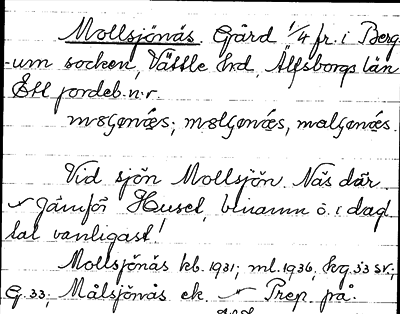 Mollsjönäs. Gård 1/4 fr. i Berg-
um socken, Vättle hd, Älfsborgs län
Ett jordeb.n:r.
Vid sjön Mollsjön. Näs där.
Jämför Huset, binamn ö. i dag.
tal vanligast!
Mollsjönäs kb. 1931; ml. 1936, kg. 33 sv.;
G. 33; Målsjönås ek. Prep. på.